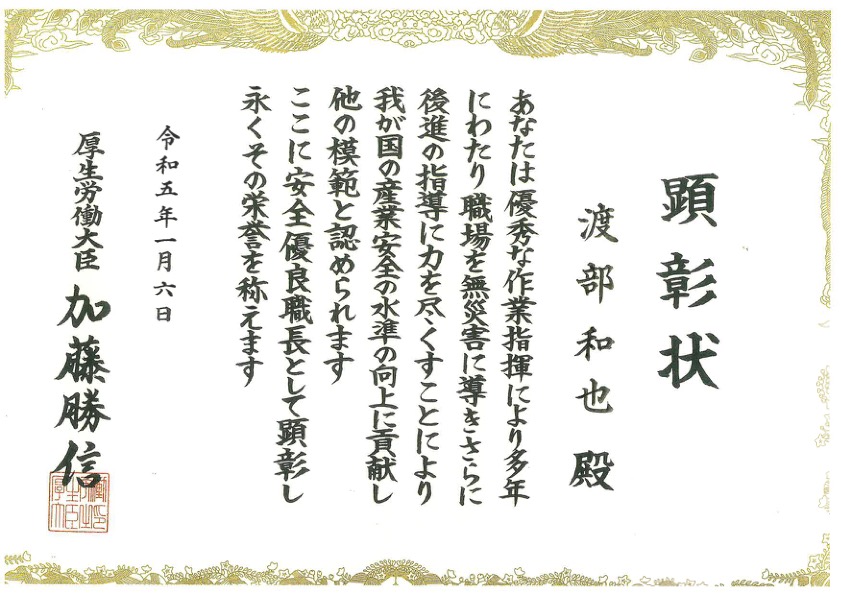 顕彰状
渡部和也 殿
あなたは優秀な作業指揮により多年
にわたり職場を無災害に導きさらに
後進の指導に力を尽くすことにより
我が国の産業安全の水準の向上に貢献し
他の模範と認められます
ここに安全優良職長として顕彰し
永くその栄誉を称えます
令和五年一月六日
厚生労働大臣 加藤勝信